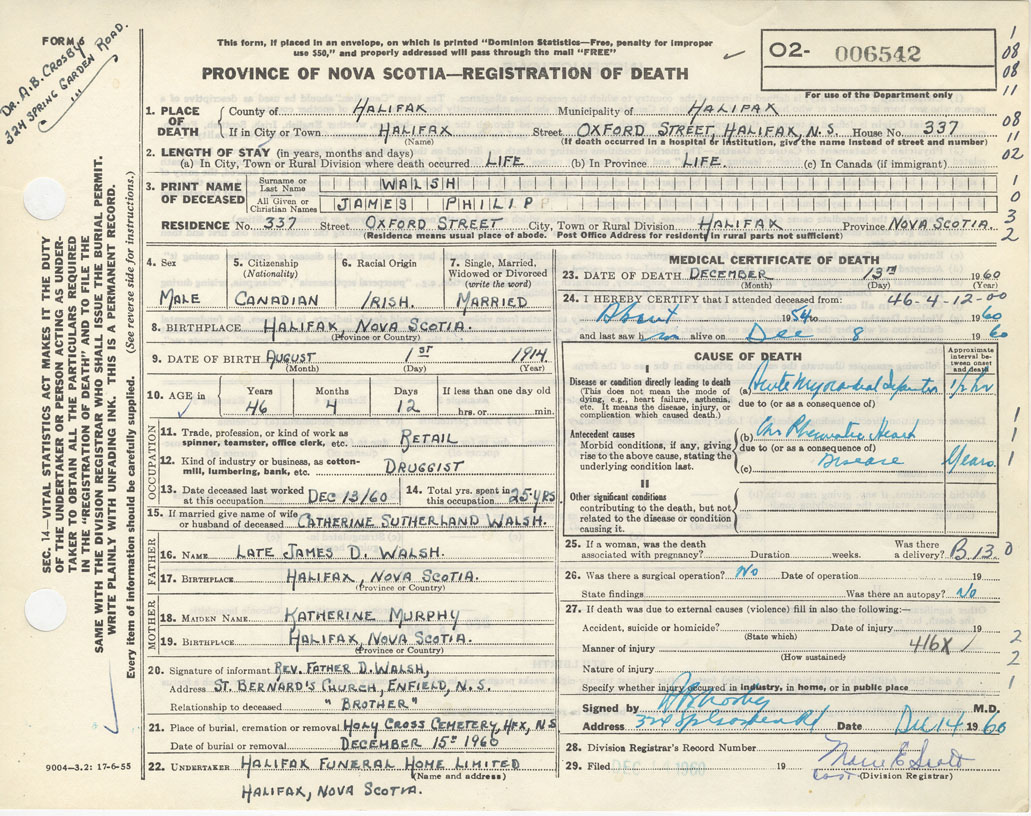 FORM 6
DR. A.B. CROSBY
324 SPRING GARDEN ROAD.
This form, if placed in an envelope, on which is printed "Dominion Statistics—Free, penalty for improper
use $50," and properly addressed will pass through the mail "FREE"
PROVINCE OF NOVA SCOTIA—REGISTRATION OF DEATH
02- 006542
For use of the Department only
1
08
08
11
08
11
02
1
0
3
2
SEC. 14—VITAL STATISTICS ACT MAKES IT THE DUTY
OF THE UNDERTAKER OR PERSON ACTING AS UNDER-
TAKER TO OBTAIN ALL THE PARTICULARS REQUIRED
IN THE "REGISTRATION OF DEATH" AND TO FILE THE
SAME WITH THE DIVISION REGISTRAR WHO SHALL ISSUE THE BURIAL PERMIT.
WRITE PLAINLY WITH UNFADING INK. THIS IS A PERMANENT RECORD.
Every item of information should be carefully supplied. (See reverse side for instructions.)
1. PLACE OF DEATH
County of HALIFAX Municipality of HALIFAX
If in City or Town HALIFAX Street OXFORD STREET, HALIFAX, N.S. House No. 337
(Name) (If death occurred in a hospital or institution, give the name instead of street and number)
2. LENGTH OF STAY (in years, months and days)
(a) In City, Town or Rural Division where death occurred LIFE (b) In Province LIFE. (c) In Canada (if immigrant)
3. PRINT NAME OF DECEASED
Surname or Last Name WALSH
All Given or Christian Names JAMES PHILIP
RESIDENCE No. 337 Street OXFORD STREET City, Town or Rural Division HALIFAX Province NOVA SCOTIA.
(Residence means usual place of abode. Post Office Address for residents in rural parts not sufficient)
4. Sex
MALE
5. Citizenship
(Nationality)
CANADIAN
6. Racial Origin
IRISH.
7. Single, Married,
Widowed or Divorced
(write the word)
MARRIED
8. BIRTHPLACE HALIFAX, NOVA SCOTIA.
(Province or Country)
9. DATE OF BIRTH AUGUST 1ST 1914
(Month) (Day) (Year)
10. AGE in
Years Months Days If less than one day old
46 4 12 hrs. or min.
OCCUPATION
11. Trade, profession, or kind of work as
spinner, teamster, office clerk, etc. RETAIL
12. Kind of industry or business, as cotton-
mill, lumbering, bank, etc. DRUGGIST
13. Date deceased last worked
at this occupation DEC 13/60
14. Total yrs. spent in
this occupation 25 YRS
15. If married give name of wife
or husband of deceased CATHERINE SUTHERLAND WALSH.
FATHER
16. NAME LATE JAMES D. WALSH.
17. BIRTHPLACE HALIFAX, NOVA SCOTIA.
(Province or Country)
MOTHER
18. MAIDEN NAME KATHERINE MURPHY
19. BIRTHPLACE HALIFAX, NOVA SCOTIA.
(Province or Country)
20. Signature of informant REV. FATHER D. WALSH,
Address ST. BERNARD'S CHURCH, ENFIELD, N.S.
Relationship to deceased "BROTHER"
21. Place of burial, cremation or removal HOLY CROSS CEMETERY, HFX, N.S
Date of burial or removal DECEMBER 15TH 1960
22. UNDERTAKER HALIFAX FUNERAL HOME LIMITED
(Name and address)
HALIFAX, NOVA SCOTIA.
9004—3.2: 17-6-55
MEDICAL CERTIFICATE OF DEATH
23. DATE OF DEATH DECEMBER 13TH 1960
(Month) (Day)
24. I HEREBY CERTIFY that I attended deceased from: 46-4-12-00
About 1954 to 1960
and last saw him alive on Dec 8 1960
CAUSE OF DEATH
Approximate
interval be-
tween onset
and death
I
Disease or condition directly leading to death
(This does not mean the mode of
dying, e.g., heart failure, asthenia,
etc. It means the disease, injury, or
complication which caused death.)
(a) Acute Myocardial Infarction 1/2 hr
due to (or as a consequence of)
Antecedent causes
Morbid conditions, if any, giving
rise to the above cause, stating the
underlying condition last.
(b) Chr Rheumatic Heart
due to (or as a consequence of)
(c) Disease Years.
1
1
1
II
Other significant conditions
contributing to the death, but not
related to the disease or condition
causing it.
25. If a woman, was the death
associated with pregnancy? Duration weeks. Was there
a delivery? B.13. 0
26. Was there a surgical operation? No Date of operation 19
State findings Was there an autopsy? No
27. If death was due to external causes (violence) fill in also the following:—
Accident, suicide or homicide? Date of injury 19
(State which)
Manner of injury 416X
(How sustained)
Nature of injury
2
2
1
Specify whether injury occurred in industry, in home, or in public place
Signed by AB Crosby M.D.
Address 324 Sp Garden Rd Date Dec 14 1960
28. Division Registrar's Record Number
29. Filed DEC 1960 19 Marie E Scott
(Division Registrar)